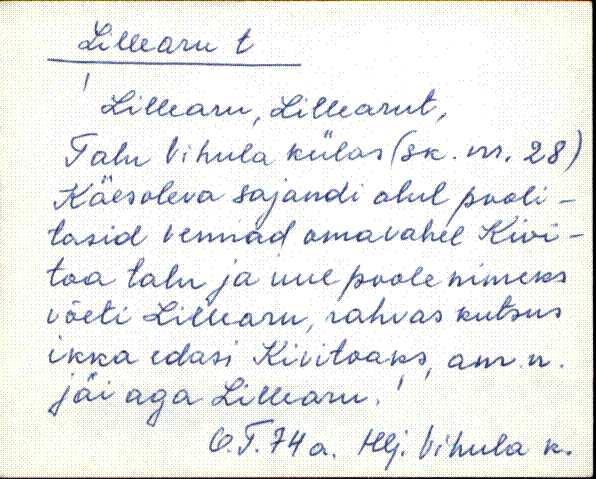 Lillearu t
'Lillearu, Lillearut,
Talu Vihula külas (sk. nr. 28)
Käesoleva sajandi alul pooli-
tasid vennad omavahel Kivi-
toa talu ja uue poole nimeks
võeti Lillearu, rahvas kutsus
ikka edasi Kivitoaks, am.n.
jäi aga Lillearu.'
O.T. 74 a. Hlj. Vihula k.